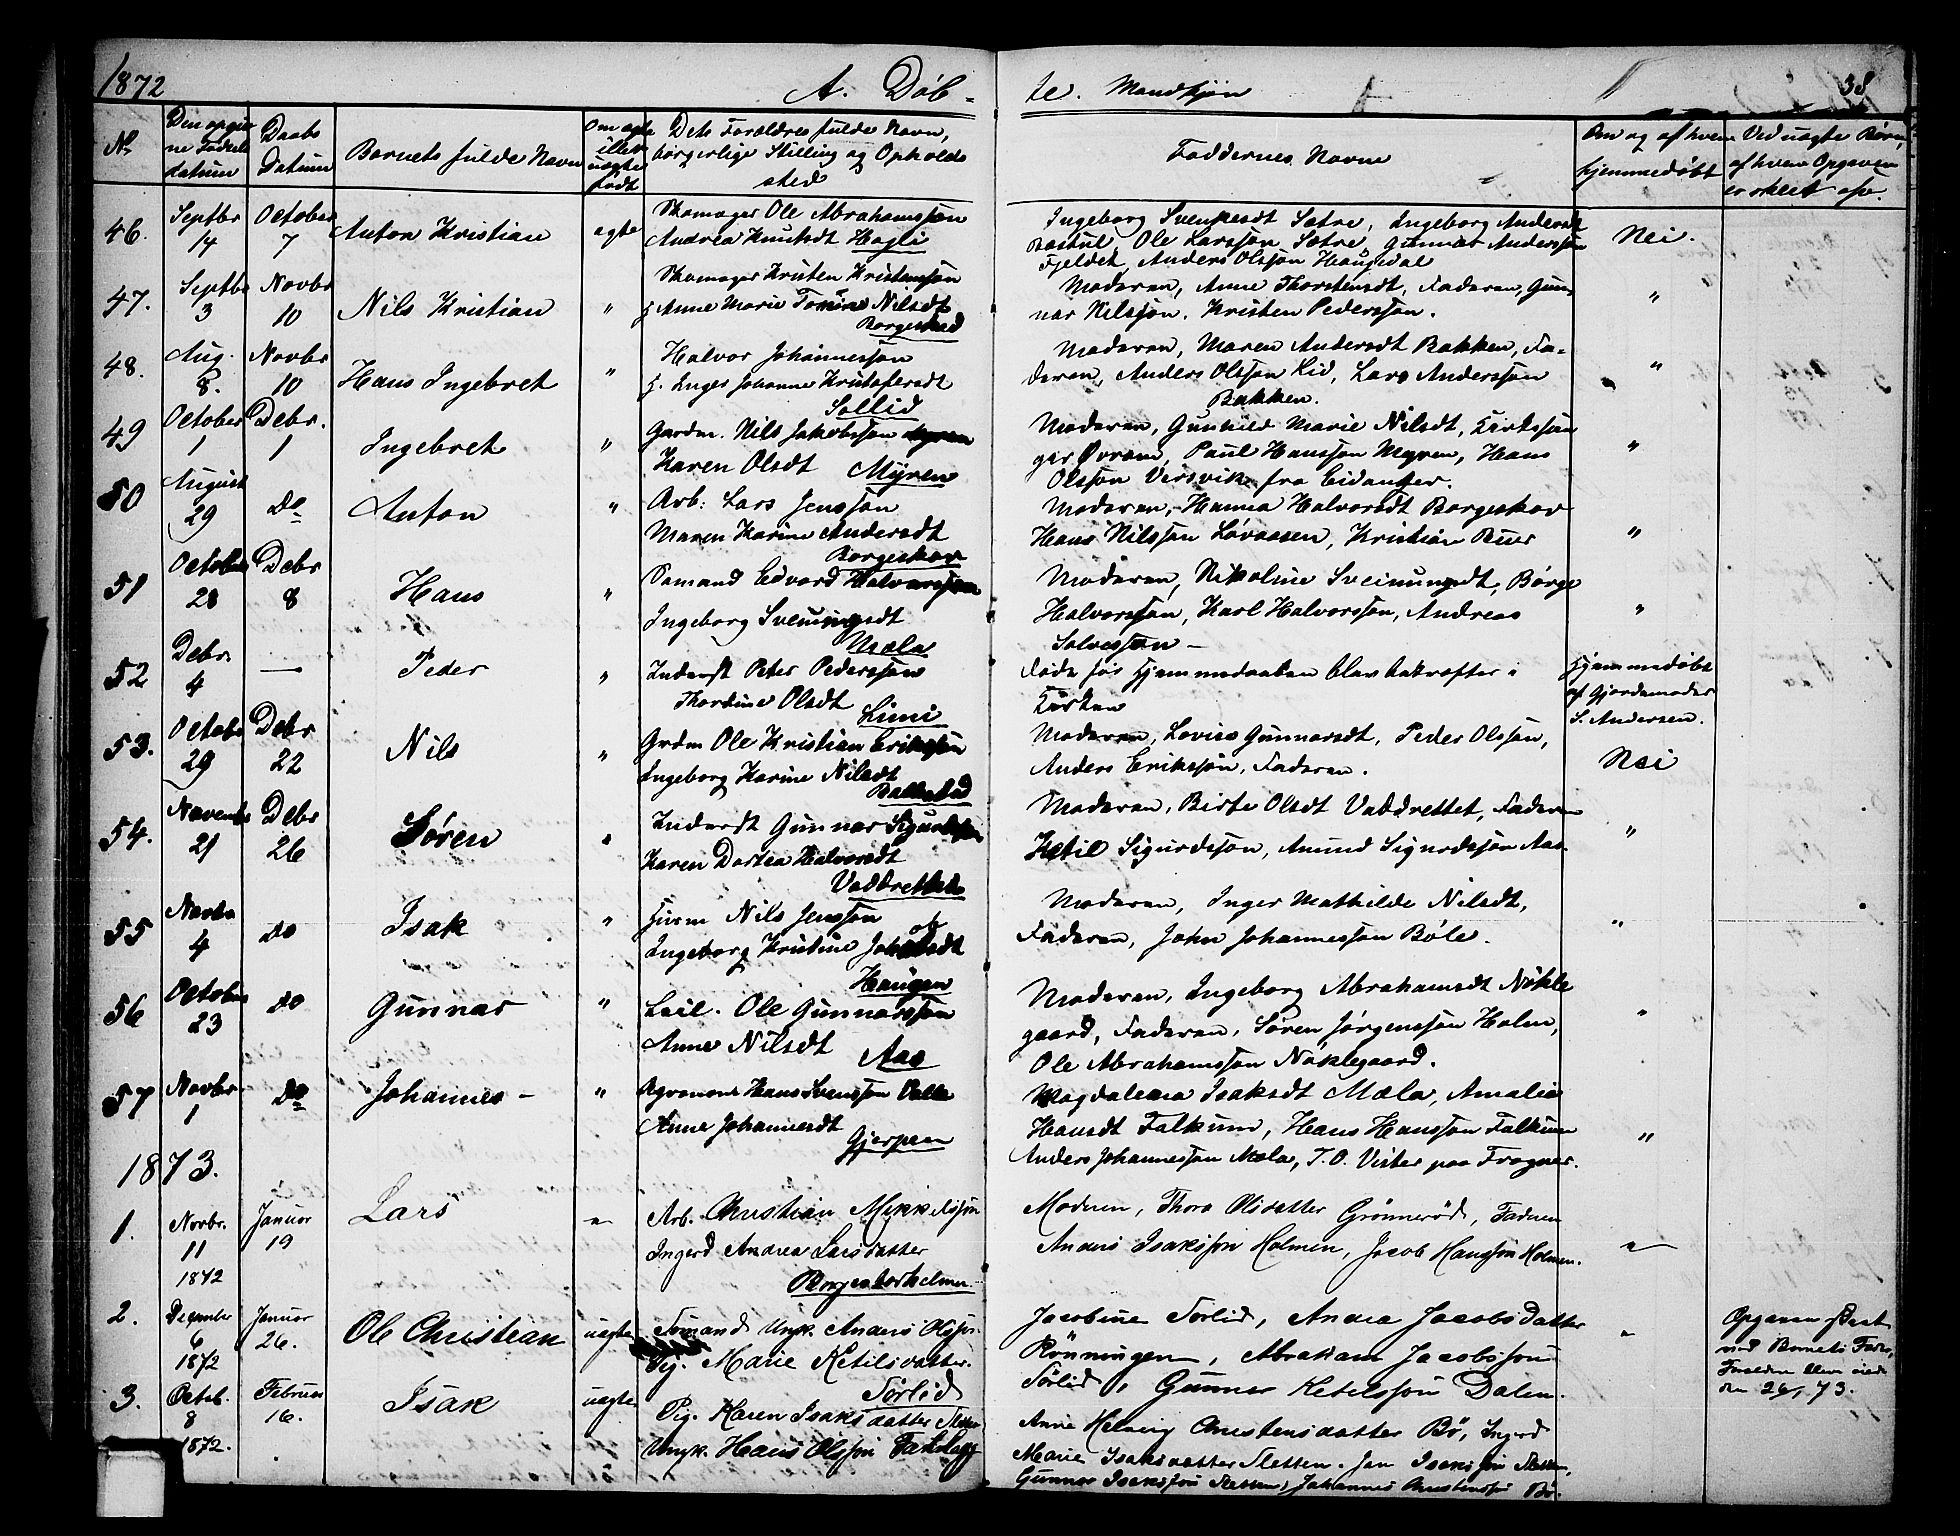 1872
A. Døb-
te. Mandkjøn
38
No
Den opgiv
ne Fødsels
datum
Daabs
Datum
Barnets fulde Navn
Om ægte
eller
uægte
født
Dets Forældres fulde Navn,
borgerlige Stilling og Opholds
sted
Faddernes Navne
Om og af hvem
hjemmedøbt
Ved uægte Børn,
af hvem Opgaven
er skeet osv.
46.
Septbr
14
October
7
Anton Kristian
ægte
Skomager Ole Abrahamssøn
Andrea Knutsdt Høgli
Ingeborg Svenkesdt Sætre, Ingeborg Andersdt
Østul, Ole Larssøn Sætre, Gunnar Anderssøn
Fjeldet, Anders Olssøn Haugedal
Nei.
47.
Septbr
3
Novbr
10
Nils Kristian
"
Skomager Kristen Kristenssøn
Anne Marie Tomine Nilsdt
Borgestad
Moderen, Anne Thorstensdt, Faderen, Gun-
nar Nilssøn, Kristen Pederssøn.
"
48.
Aug.
8.
Novbr
10
Hans Ingebret
"
Halvor Johannessøn
Inger Johanne Kristofersdt
Sollid
Moderen, Maren Andersdt Bakken, Fa-
deren, Anders Olssøn Lid, Lars Anderssøn
Bakken.
"
49
October
1
Debr.
1
Ingebret
"
Gardm. Nils Jakobssøn
Karen Olsdt Myren
Moderen, Gunhild Marie Nilsdt, Kirkesan-
ger Øvrum, Paul Hanssøn Myren, Hans
Olssøn Versvik fra Eidanger.
"
50
August
29
Do
Anton
"
Arb: Lars Jenssøn
Maren Karine Andersdt
Borgeskov
Moderen, Hanna Halvorsdt Borgeskov
Hans Nilssøn Løvaasen, Kristian Buer
"
51
October
28
Debr
8
Hans
"
Sømand Edvard Halvorssøn
Ingeborg Sveinungsdt
Mæla
Moderen, Nikoline Sveinungsdt, Børge
Halvorssøn, Karl Halvorssøn, Andreas
Solvessøn –
"
52
Debr.
4
—
Peder
"
Inderst Peter Pederssøn
Thordine Olsdt
Limi
Døde før Hjemmedaaben blev bekræftet i
Kirken
Hjemmedøbt
af Gjordemoder
S. Andersen.
53.
October
29
Debr
22
Nils
"
Grdm Ole Kristian Erikssøn
Ingeborg Karine Nilsdt
Ballestad
Moderen, Lovise Gunnarsdt, Peder Olssøn,
Anders Erikssøn, Faderen.
Nei
54.
November
21
Debr
26
Søren
"
Inderst Gunnar Sigurdssøn
Karen Dortea Halvorsdt
Vaddrettet
Moderen, Birte Olsdt Vaddrettet, Faderen
Ketil Sigurdssøn, Amund Sigurdssøn Aas-
"
55
Novbr
4
Do
Isak
"
Husm Nils Jenssøn
Ingeborg Kristine
Haugen
Moderen, Inger Mathilde Nilsdt,
Faderen, John Johannessøn Bøle.
"
56
October
23
Do
Gunnar
"
Leil. Ole Gunnarssøn
Anne Nilsdt Aas
Moderen, Ingeborg Abrahamsdt Nøkle
gaard, Faderen, Søren Jørgenssøn Holm,
Ole Abrahamssøn Nøklegaard.
"
57
Novbr
1
Do
Johannes –
"
Agronom Hans Svenssøn
Anne Johannesdt
Gjerpen
Magdalena Isaksdt Mæla, Amalie
Hansdt Falkum, Hans Hanssøn Falkum
Anders Johannessøn Mæla, T.O. Vister paa Frogner.
"
1873.
1.
Novbr.
11
1872
Januar
19
Lars
"
Arb. Christian Mikkelssøn
Ingerd Andrea Larsdatter
Borgestadholmen.
Moderen, Thora Olsdatter Grønnerød, Faderen
Anders Isakssøn Holmen, Jacob Hanssøn Holmen.
"
2.
December
6
1872
Januar
26.
Ole Christian
uægte
Sømand Ungk. Anders Olssøn
Pig. Marie Ketilsdatter.
Tørlid
Jacobine Tørlid, Andrea Jacobsdatter
Rønningen, Abraham Jacobssøn
Tørlid, Gunner Ketelssøn Dalen.
"
Opgaven skeet
ved Barnets Fader,
Forældrene blev viede
den 26/1 73.
3.
Octob.
8
1872.
Februar
16.
Isak
uægte
Pig. Karen Isaksdatter Sletten
Ungk. Hans Olssøn
Anne Helvig Christensdatter Bø, Ingerd
Marie Isaksdatter Sletten. Jan Isakssøn Sletten,
Gunnar Isakssøn Sletten, Johannes Christenssøn Bø.